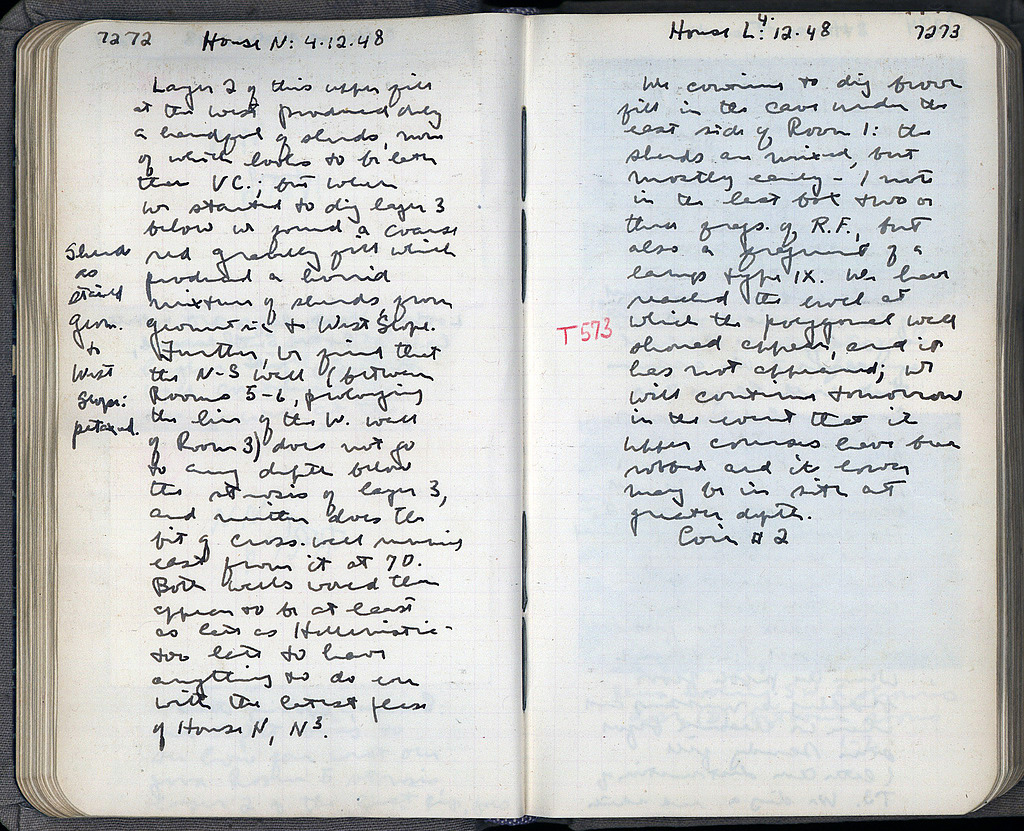 7272
House N: 4.12.48
Layer 2 of this upper fill
at the west produced only
a handful of sherds, none
of which looks to be later
than VC.; but when
we started to dig layer 3
below we found a coarse
red gravelly fill which
produced a horrid
mixture of sherds, from
geometric to West Slope.
Further, we find that
the N-S wall (between
Rooms 5-6, prolonging
the line of the W. wall
of Room 3) does not go
to any depth below
the of layer 3,
and neither does the
bit of cross-wall running
east from it at 70.
Both walls would then
appear to be at least
as late as Hellenistic -
too late to have
anything to do
with the latest phase
of House N, N³.
Sherds
as
Geom.
to
West
Slope:
7273
House L: 4.12.48
We continue to dig brown
fill in the cave under the
east side of Room 1: the
sherds are mixed, but
mostly early - I note
in the last bot two or
three frags. of R.F., but
also a fragment of a
lamp type IX. We have
reached the level at
which the polygonal wall
should appear, and it
has not appeared; we
will continue tomorrow
in the event that its
upper courses have been
robbed and its lower
may be in situ at
greater depth.
Coin # 2
T 573